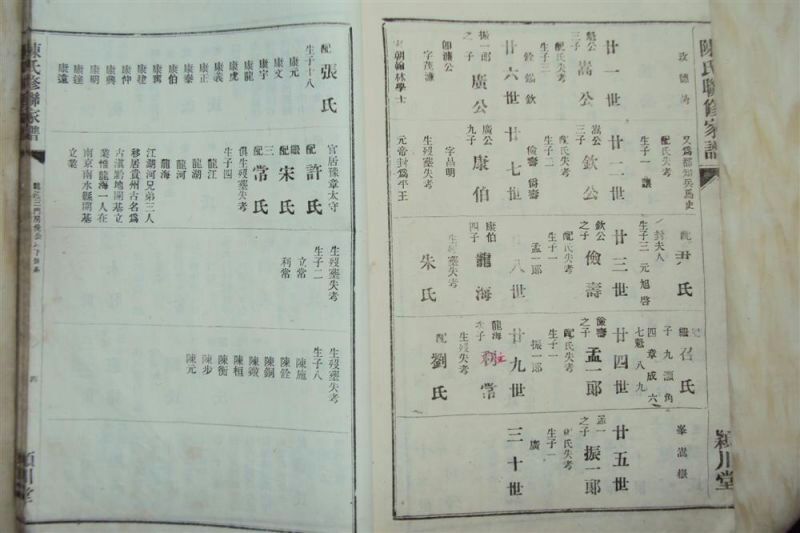 陳氏聯修家譜
穎川堂
攻德
又爲都知兵馬史
配氏失考
生子一讓
配尹氏
封夫人
生子三元旭啓
繼召氏
子九灝角
四章成六
七魁八九
峯嵩嶽
廿一世
廿二世
廿三世
廿四世
廿五世
魁公
三子
嵩公
配氏失考
生子三
銓錫欽
嵩公
三子
欽公
配氏失考
生子二
儉壽
欽公
之子
儉壽
配氏失考
生子一
孟一郎
儉壽
之子
孟一郎
配氏失考
生子一
振一郎
孟一
之子
振一郎
配氏失考
生子一
廣
廿六世
廿七世
廿八世
廿九世
三十世
振一郎
之子
廣公
卽濂公
字茂濂
朝翰林學士
廣公
九子
康伯
字昌明
生歿塟失考
元帝封爲平王
康伯
四子
龍海
生歿塟失考
朱氏
龍海
次子
利常
生歿失考
配劉氏
配張氏
生子十八
康元
康文
康宇
康龍
康虎
康義
康正
康泰
康伯
康寓
康健
康仲
康興
康明
康達
康遠
官居豫章太守
配許氏
繼配宋氏
三配常氏
俱生歿塟失考
生子四
龍江
龍湖
龍河
龍海
江湖河兄弟三人
移居貴州古名爲
古滇黔地開基立
業惟龍海一人在
南京南水縣開基
立業
生歿塟失考
生子二
立常
利常
生歿塟失考
生子八
陳施
陳銓
陳鋼
陳鏇
陳桓
陳衡
陳步
陳元
陳氏修聯家譜
四
穎川堂